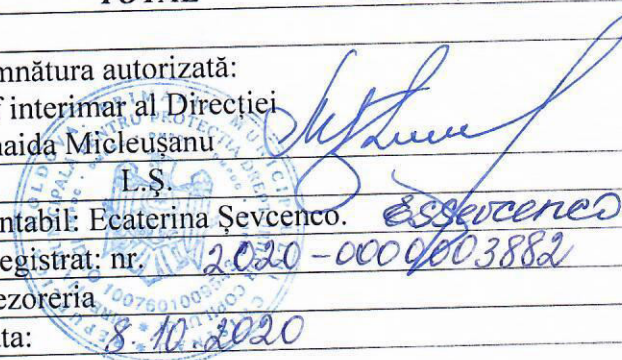 TOTAL
mnătura autorizată:
f interimar al Direcției
naida Micleușanu
L.Ș.
ntabil: Ecaterina Șevcenco. ESșevcenco
egistrat: nr. 2020-0000003882
ezoreria
ata: 8.10.2020